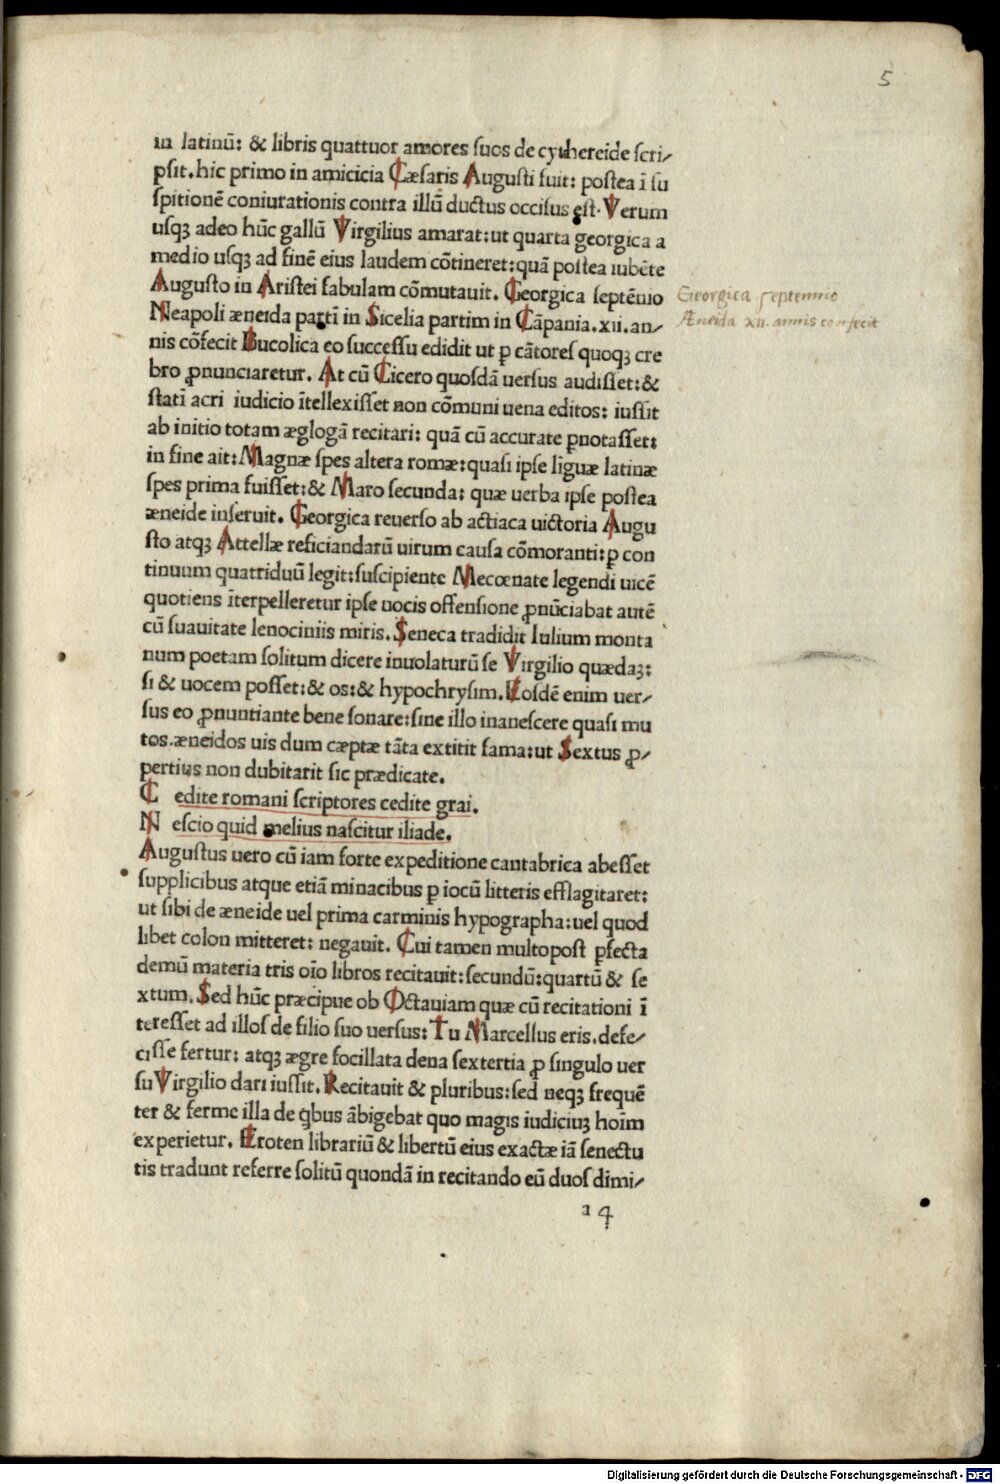 5
in latinū: & libris quattuor amores suos de cythereide scri/
psit. hic primo in amicicia Cæsaris Augusti fuit: postea ī su
spitionē coniurationis contra illū ductus occisus est. Verum
usqꝫ adeo hūc gallū Virgilius amarat: ut quarta georgica a
medio usqꝫ ad finē eius laudem cōtineret: quā postea iubēte
Augusto in Aristei fabulam cōmutauit. Georgica septēnio
Georgica septennio
Neapoli æneida partī in Sicelia partim in Cāpania. xii. an/
Æneida XII. annis confecit
nis cōfecit Bucolica eo successu edidit ut ꝑ cātores quoqꝫ cre
bro ꝓnunciaretur. At cū Cicero quosdā uersus audisset: &
statī acri iudicio ītellexisset non cōmuni uena editos: iussit
ab initio totam æglogā recitari: quā cū accurate ꝑnotasset:
in fine ait: Magnæ spes altera romæ: quasi ipse liguæ latinæ
spes prima fuisset: & Maro secunda: quæ uerba ipse postea
æneide inseruit. Georgica reuerso ab actiaca uictoria Augu
sto atqꝫ Attellæ reficiandarū uirum causa cōmoranti: ꝑ con
tinuum quatriduū legit: suscipiente Mecœnate legendi uicē
quotiens īterpelleretur ipse uocis offensione ꝓnūciabat autē
cū suauitate lenociniis miris. Seneca tradidit Iulium monta
num poetam solitum dicere inuolaturū se Virgilio quædaꝫ:
si & uocem posset: & os: & hypochrysim. Eosdē enim uer/
sus eo ꝓnuntiante bene sonare: sine illo inanescere quasi mu
tos. æneidos uis dum cæptæ tāta extitit fama: ut Sextus ꝓ/
pertius non dubitarit sic prædicate.
C edite romani scriptores cedite grai.
N escio quid melius nascitur iliade.
Augustus uero cū iam forte expeditione cantabrica abesset
supplicibus atque etiā minacibus ꝑ iocū litteris efflagitaret:
ut sibi de æneide uel prima carminis hypographa: uel quod
libet colon mitteret: negauit. Cui tamen multopost ꝑfecta
demū materia tris oīo libros recitauit: secundū: quartū & se
xtum. Sed hūc præcipue ob Octauiam quæ cū recitationi ī
teresset ad illos de filio suo uersus: Tu Marcellus eris. defe/
cisse fertur: atqꝫ ægre focillata dena sextertia ꝓ singulo uer
su Virgilio dari iussit. Recitauit & pluribus: sed neqꝫ frequē
ter & ferme illa de qbus ābigebat quo magis iudiciuꝫ hoīm
experietur. Eroten librariū & libertū eius exactæ iā senectu
tis tradunt referre solitū quondā in recitando eū duos dimi/
a 4
Digitalisierung gefördert durch die Deutsche Forschungsgemeinschaft - DFG